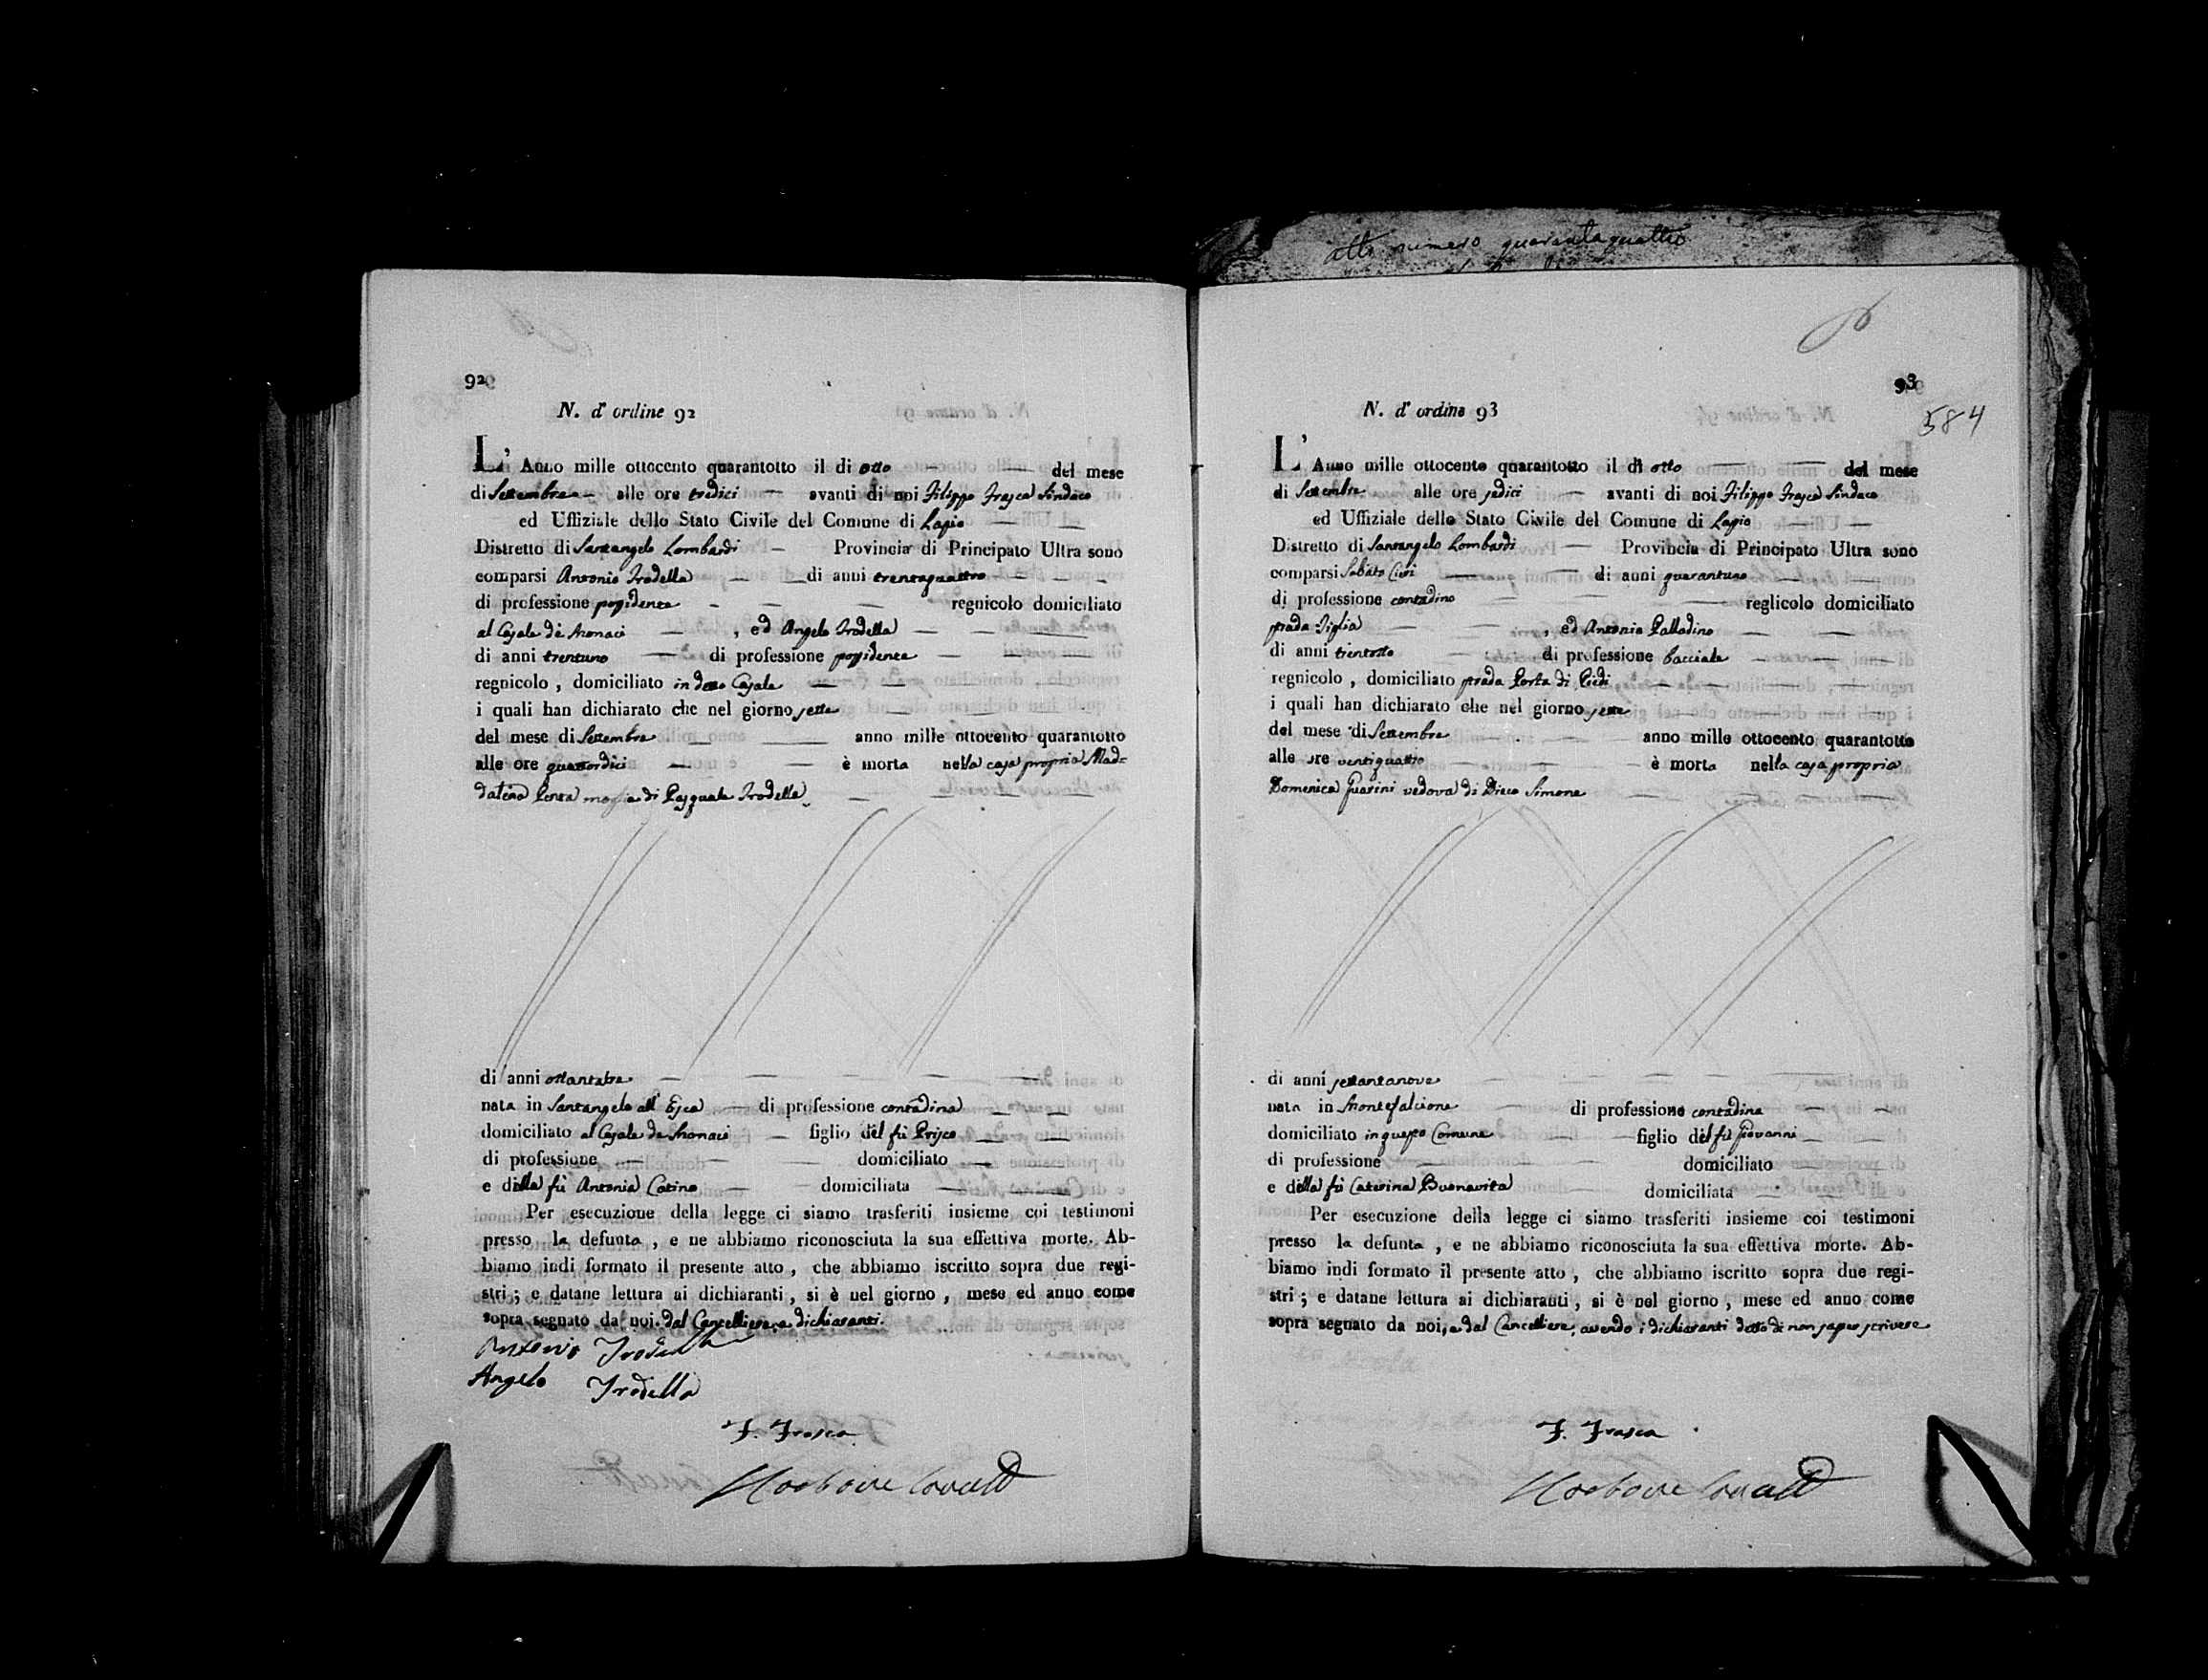 atto numero quarantaquattro
92
N. d' ordine 92
L' Anno mille ottocento quarantotto il di otto del mese
di Settembre alle ore tredici avanti di noi Filippo Frasca Sindaco
ed Uffiziale dello Stato Civile del Comune di Lapio
Distretto di Santangelo Lombardi Provincia di Principato Ultra sono
comparsi Antonio Trodella di anni trentaquattro
di professione possidente regnicolo domiciliato
al Casale de Monaci , ed Angelo Trodella
di anni trentuno di professione possidente
regnicolo , domiciliato in detto Casale
i quali han dichiarato che nel giorno sette
del mese di Settembre anno mille ottocento quarantotto
alle ore quattordici è morta nella casa propria Mad=
dalena Penta moglie di Pasquale Trodella
di anni ottantatre
nata in Santangelo all' Esca di professione contadina
domiciliato al Casale de Monaci figlio del fù Prisco
di professione domiciliato
e della fù Antonia Cotino domiciliata
Per esecuzione della legge ci siamo trasferiti insieme coi testimoni
presso la defunta , e ne abbiamo riconosciuta la sua effettiva morte. Ab-
biamo indi formato il presente atto , che abbiamo iscritto sopra due regi-
stri ; e datane lettura ai dichiaranti , si è nel giorno , mese ed anno come
sopra segnato da noi, dal Cancelliere, e dichiaranti.
Antonio Trodella
Angelo Trodella
F. Frasca
93
584
N. d' ordine 93
L' Anno mille ottocento quarantotto il di otto del mese
di Settembre alle ore sedici avanti di noi Filippo Frasca Sindaco
ed Uffiziale dello Stato Civile del Comune di Lapio
Distretto di Santangelo Lombardi Provincia di Principato Ultra sono
comparsi Sabato di anni quarantuno
di professione contadino reglicolo domiciliato
strada Figlia , ed Antonio Palladino
di anni trentotto di professione bracciale
regnicolo , domiciliato strada Porta di Piedi
i quali han dichiarato che nel giorno sette
del mese di Settembre anno mille ottocento quarantotto
alle ore ventiquattro è morta nella casa propria
Domenica Guarini vedova di Simone
di anni settantanove
nata in Montefalcione di professione contadina
domiciliato in questo Comune figlio del fù Giovanni
di professione domiciliato
e della fù Caterina Buonavita domiciliata
Per esecuzione della legge ci siamo trasferiti insieme coi testimoni
presso la defunta , e ne abbiamo riconosciuta la sua effettiva morte. Ab-
biamo indi formato il presente atto , che abbiamo iscritto sopra due regi-
stri ; e datane lettura ai dichiaranti , si è nel giorno , mese ed anno come
sopra segnato da noi, e dal Cancelliere, avendo i dichiaranti detto di non saper scrivere
F. Frasca